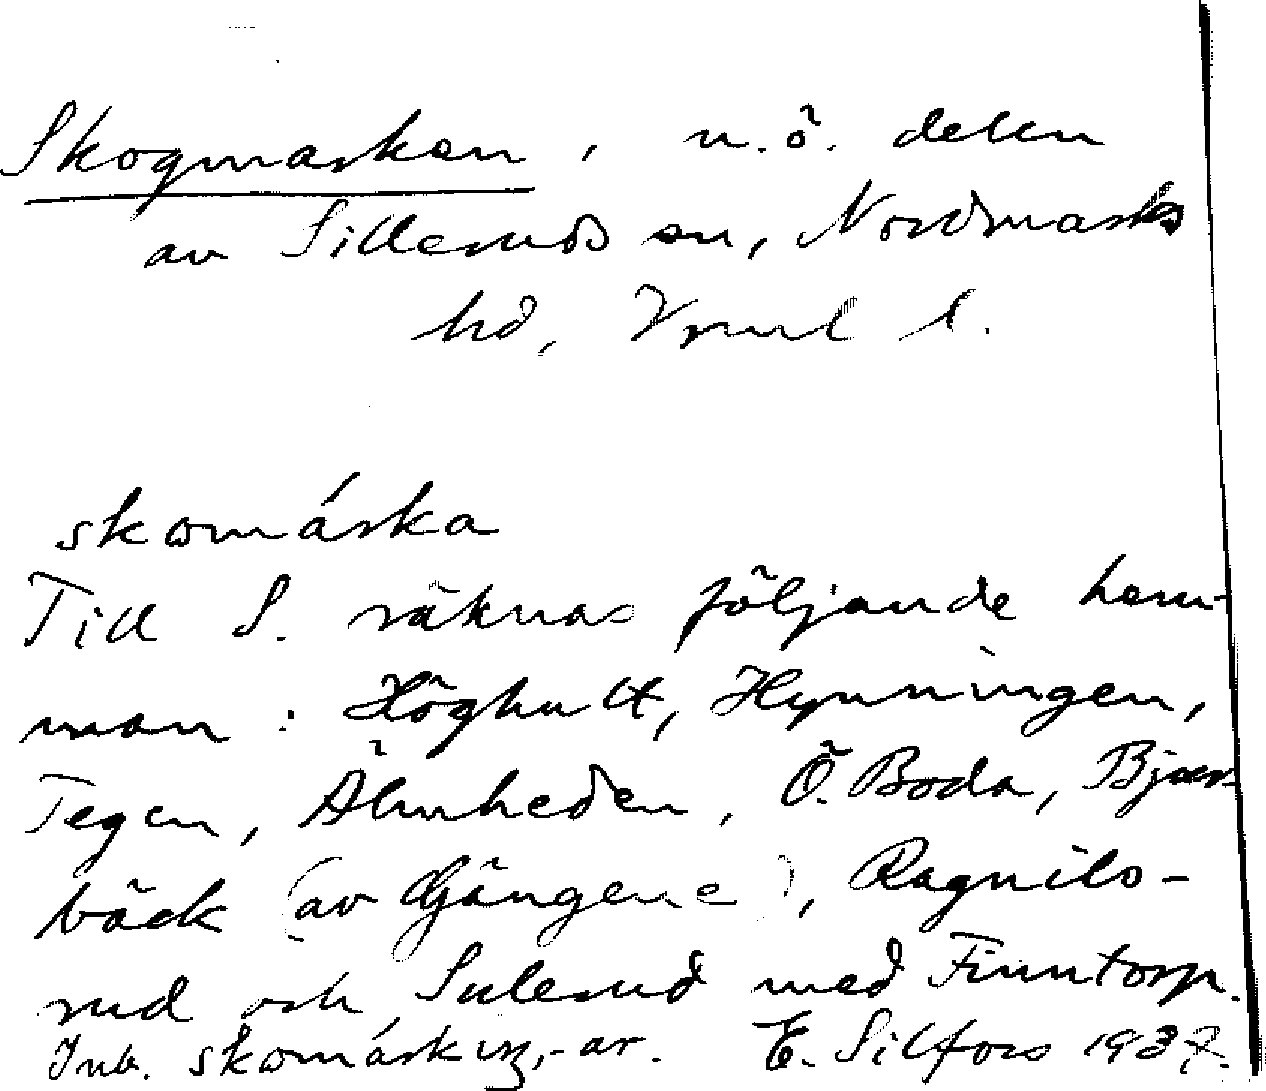 Skogmarken, n.ö. delen
av Sillerud sn, Nordmarks
hd, Vrml l.
skomárka
Till S. räknas följande hem-
man: Höghult, Hynningen,
Tegen, Älmheden, Ö. Boda, Bjur-
bäck (av Gängene), Ragnils-
rud och Sulerud med Finntorp.
Inb. skomárkiŋ, -ar. E. Silfors 1937.